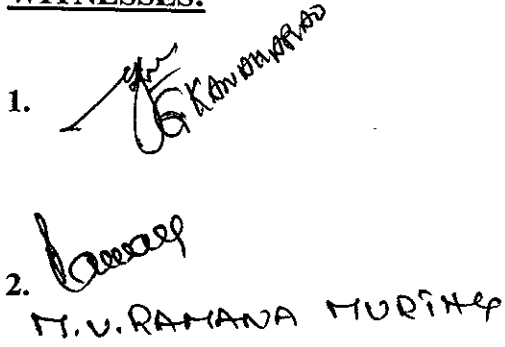 WITNESSES:
1.
G KANAKARAO
2. Ramana
M.V. RAMANA MURTHY